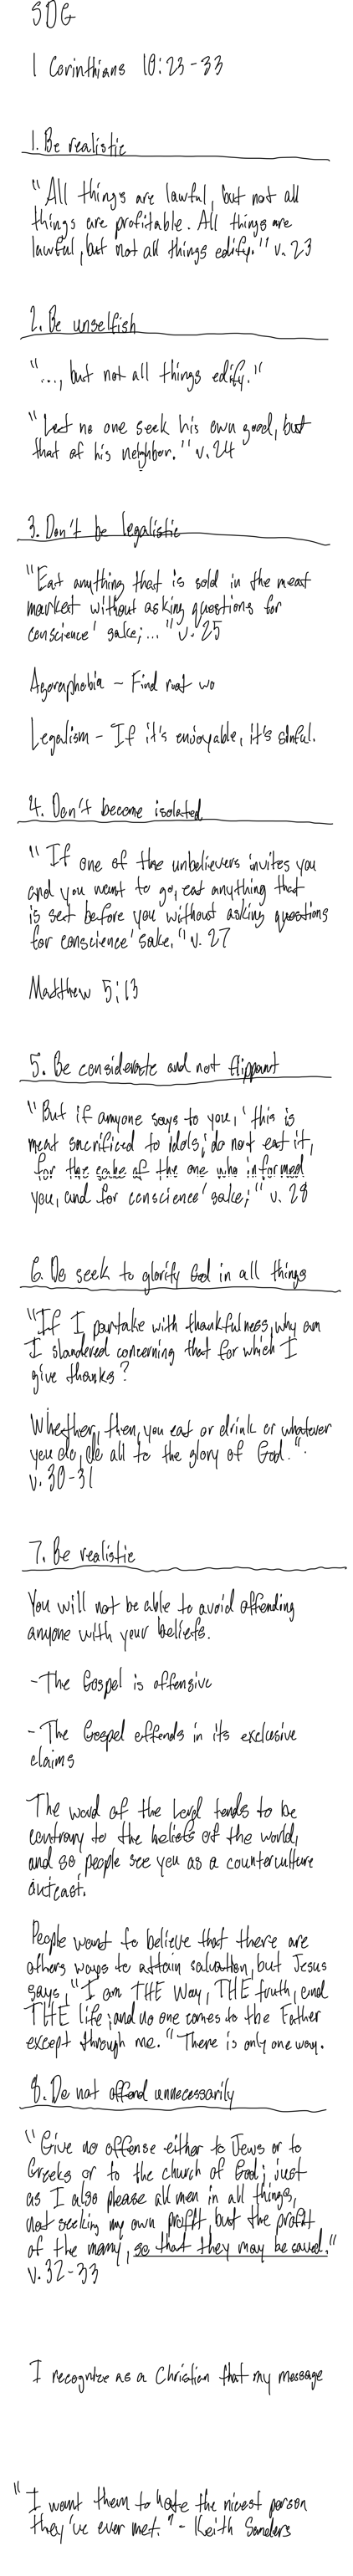 SDG
1 Corinthians 10:23-33
1. Be realistic
"All things are lawful, but not all
things are profitable. All things are
lawful, but not all things edify." v. 23
2. Be unselfish
"..., but not all things edify."
"Let no one seek his own good, but
that of his neighbor." v. 24
3. Don't be legalistic
"Eat anything that is sold in the meat
market without asking questions for
conscience' sake;..." v. 25
Agoraphobia ~ Find root wo
Legalism - If it's enjoyable, it's sinful.
4. Don't become isolated
"If one of the unbelievers invites you
and you want to go, eat anything that
is set before you without asking questions
for conscience' sake." v. 27
Matthew 5:13
5. Be considerate and not flippant
"But if anyone says to you, 'this is
meat sacrificed to idols,' do not eat it,
for the sake of the one who informed
you, and for conscience' sake;" v. 28
6. Do seek to glorify God in all things
"If I partake with thankfulness, why am
I slandered concerning that for which I
give thanks?
Whether, then, you eat or drink or whatever
you do, do all to the glory of God.".
v. 30-31
7. Be realistic
You will not be able to avoid offending
anyone with your beliefs.
-The Gospel is offensive
-The Gospel offends in its exclusive
claims
The word of the Lord tends to be
contrary to the beliefs of the world,
and so people see you as a counterculture
outcast.
People want to believe that there are
others ways to attain salvation, but Jesus
says, "I am THE Way, THE truth, and
THE life; and no one comes to the Father
except through me." There is only one way.
8. Do not offend unnecessarily
"Give no offense either to Jews or to
Greeks or to the church of God; just
as I also please all men in all things,
not seeking my own profit, but the profit
of the many, so that they may be saved."
v. 32-33
I recognize as a Christian that my message
"I want them to hate the nicest person
they've ever met." - Keith Sanders